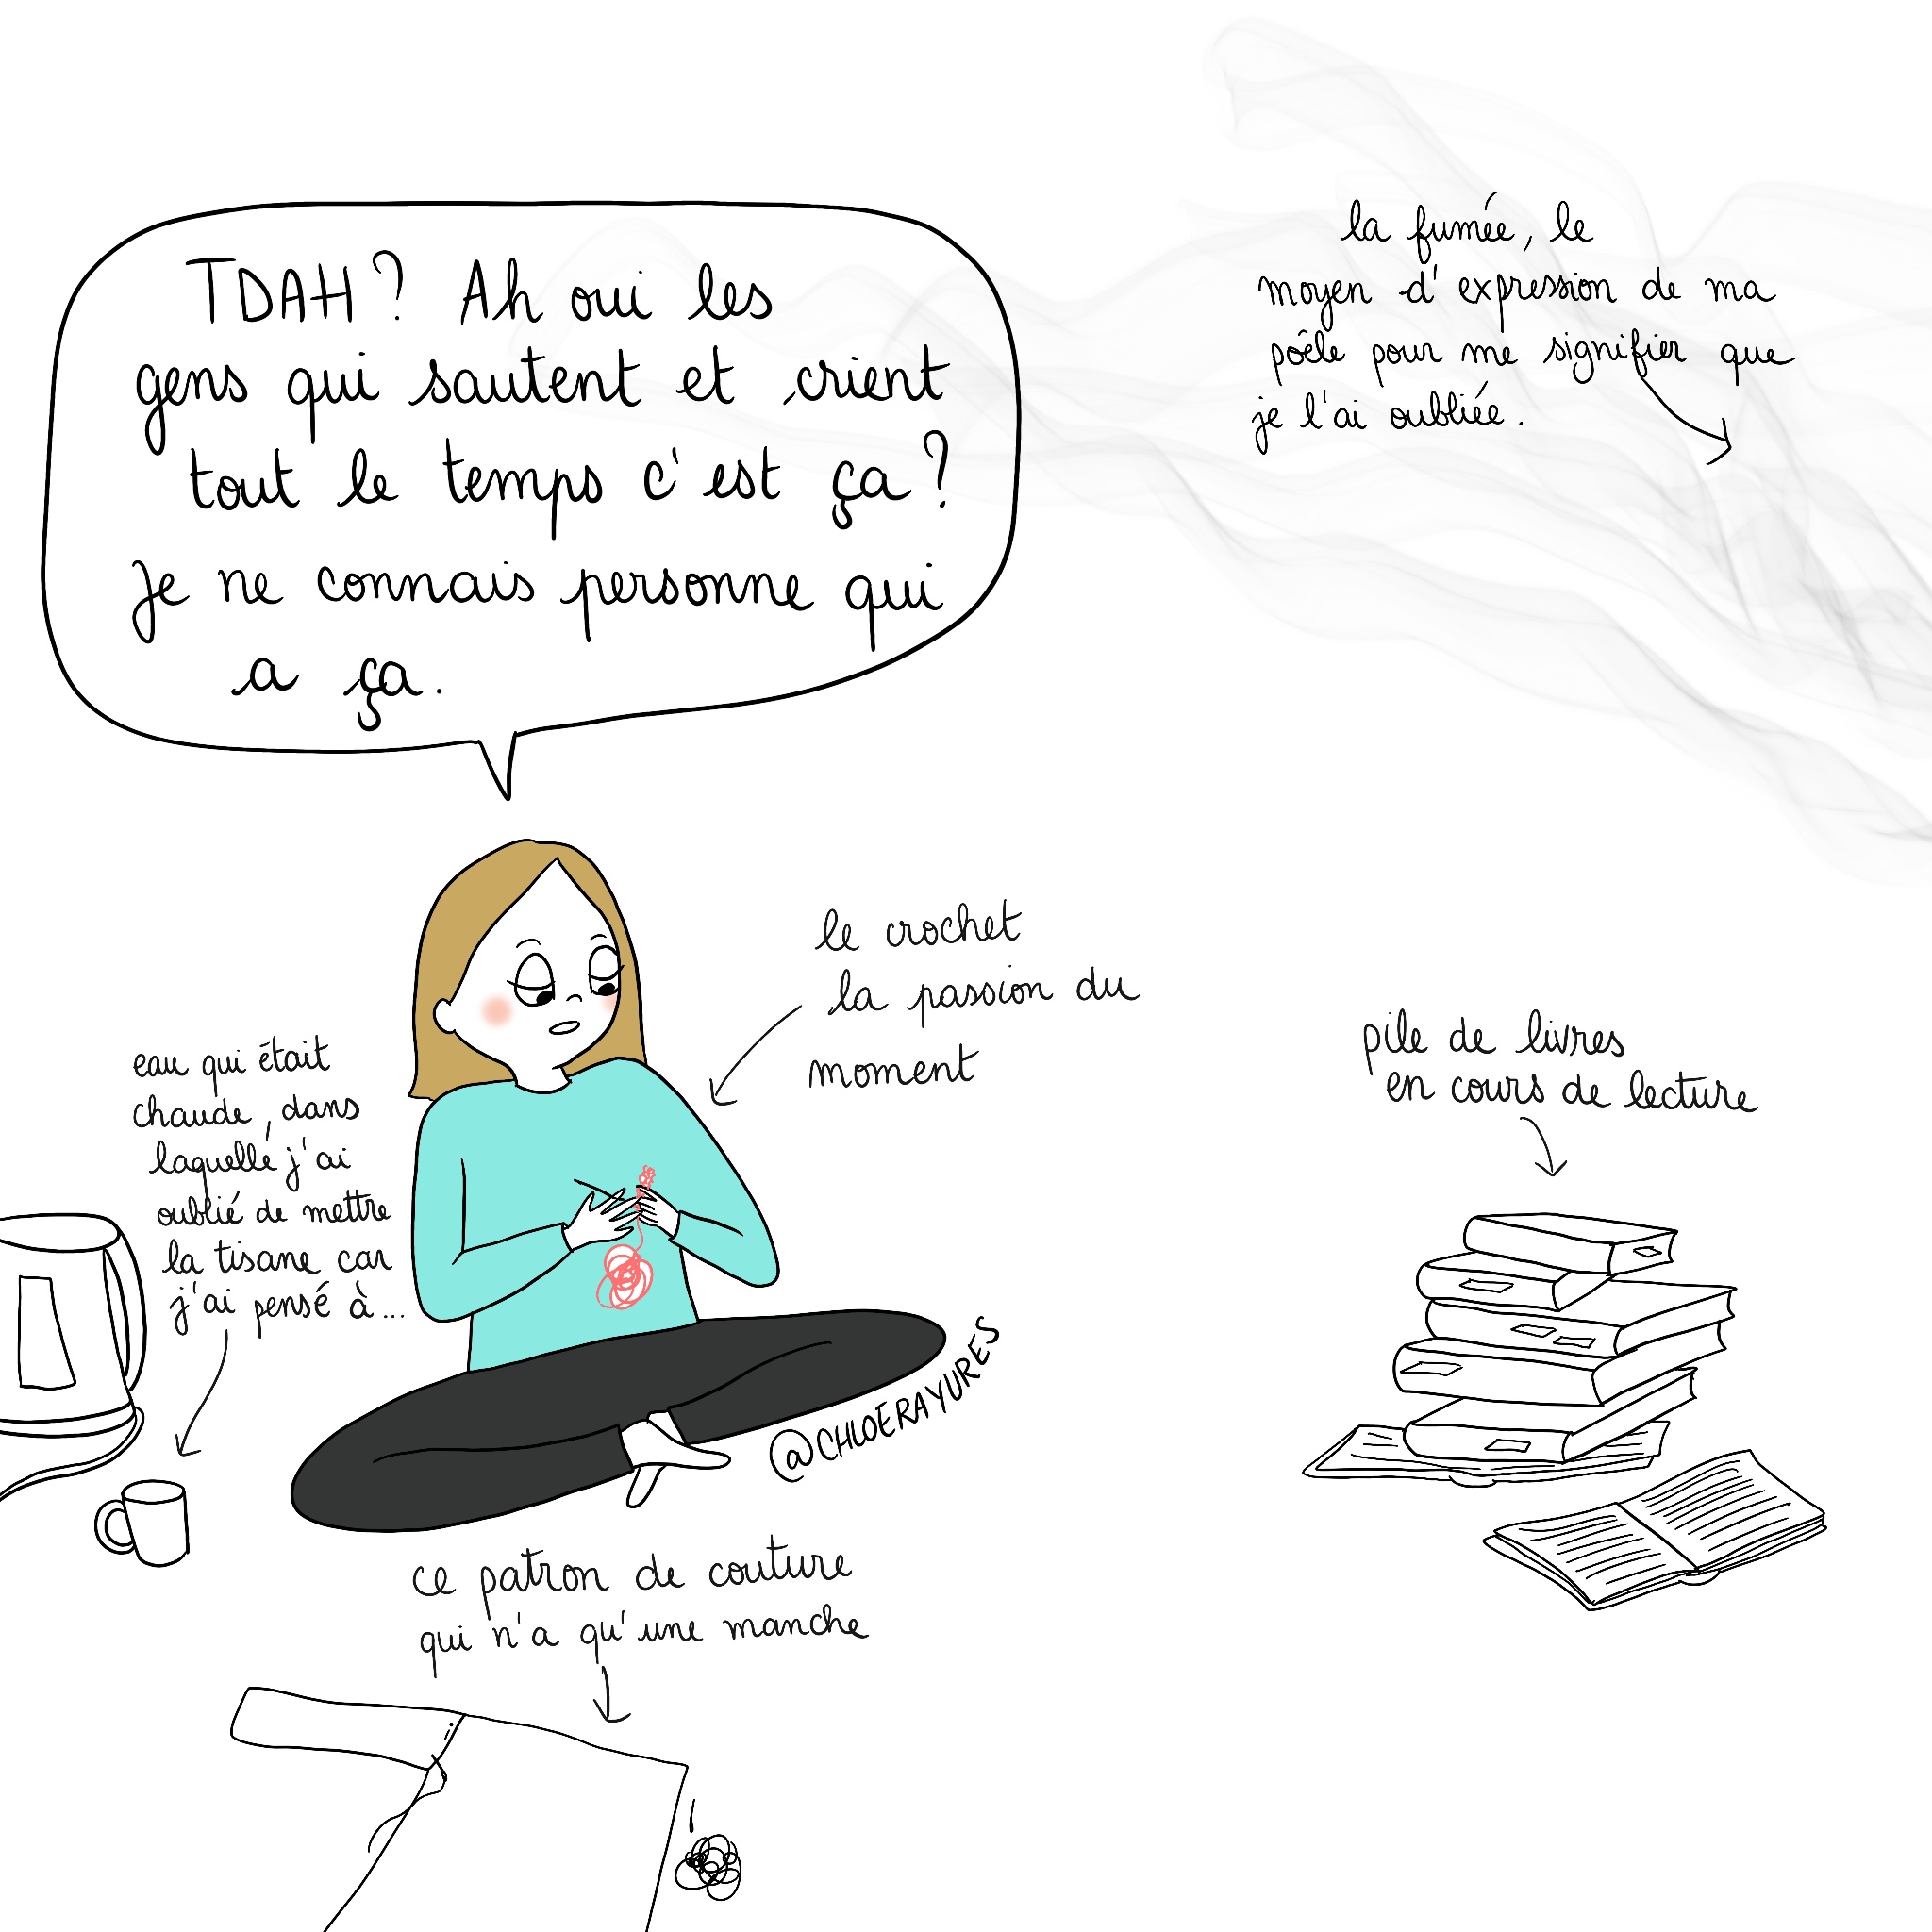 TDAH ? Ah oui les
gens qui sautent et crient
tout le temps c'est ça ?
Je ne connais personne qui
a ça.
la fumée, le
moyen d'expression de ma
poêle pour me signifier que
je l'ai oubliée.
le crochet
la passion du
moment
eau qui était
chaude, dans
laquelle j'ai
oublié de mettre
la tisane car
j'ai pensé à...
pile de livres
en cours de lecture
@CHLOERAYURES
ce patron de couture
qui n'a qu'une manche